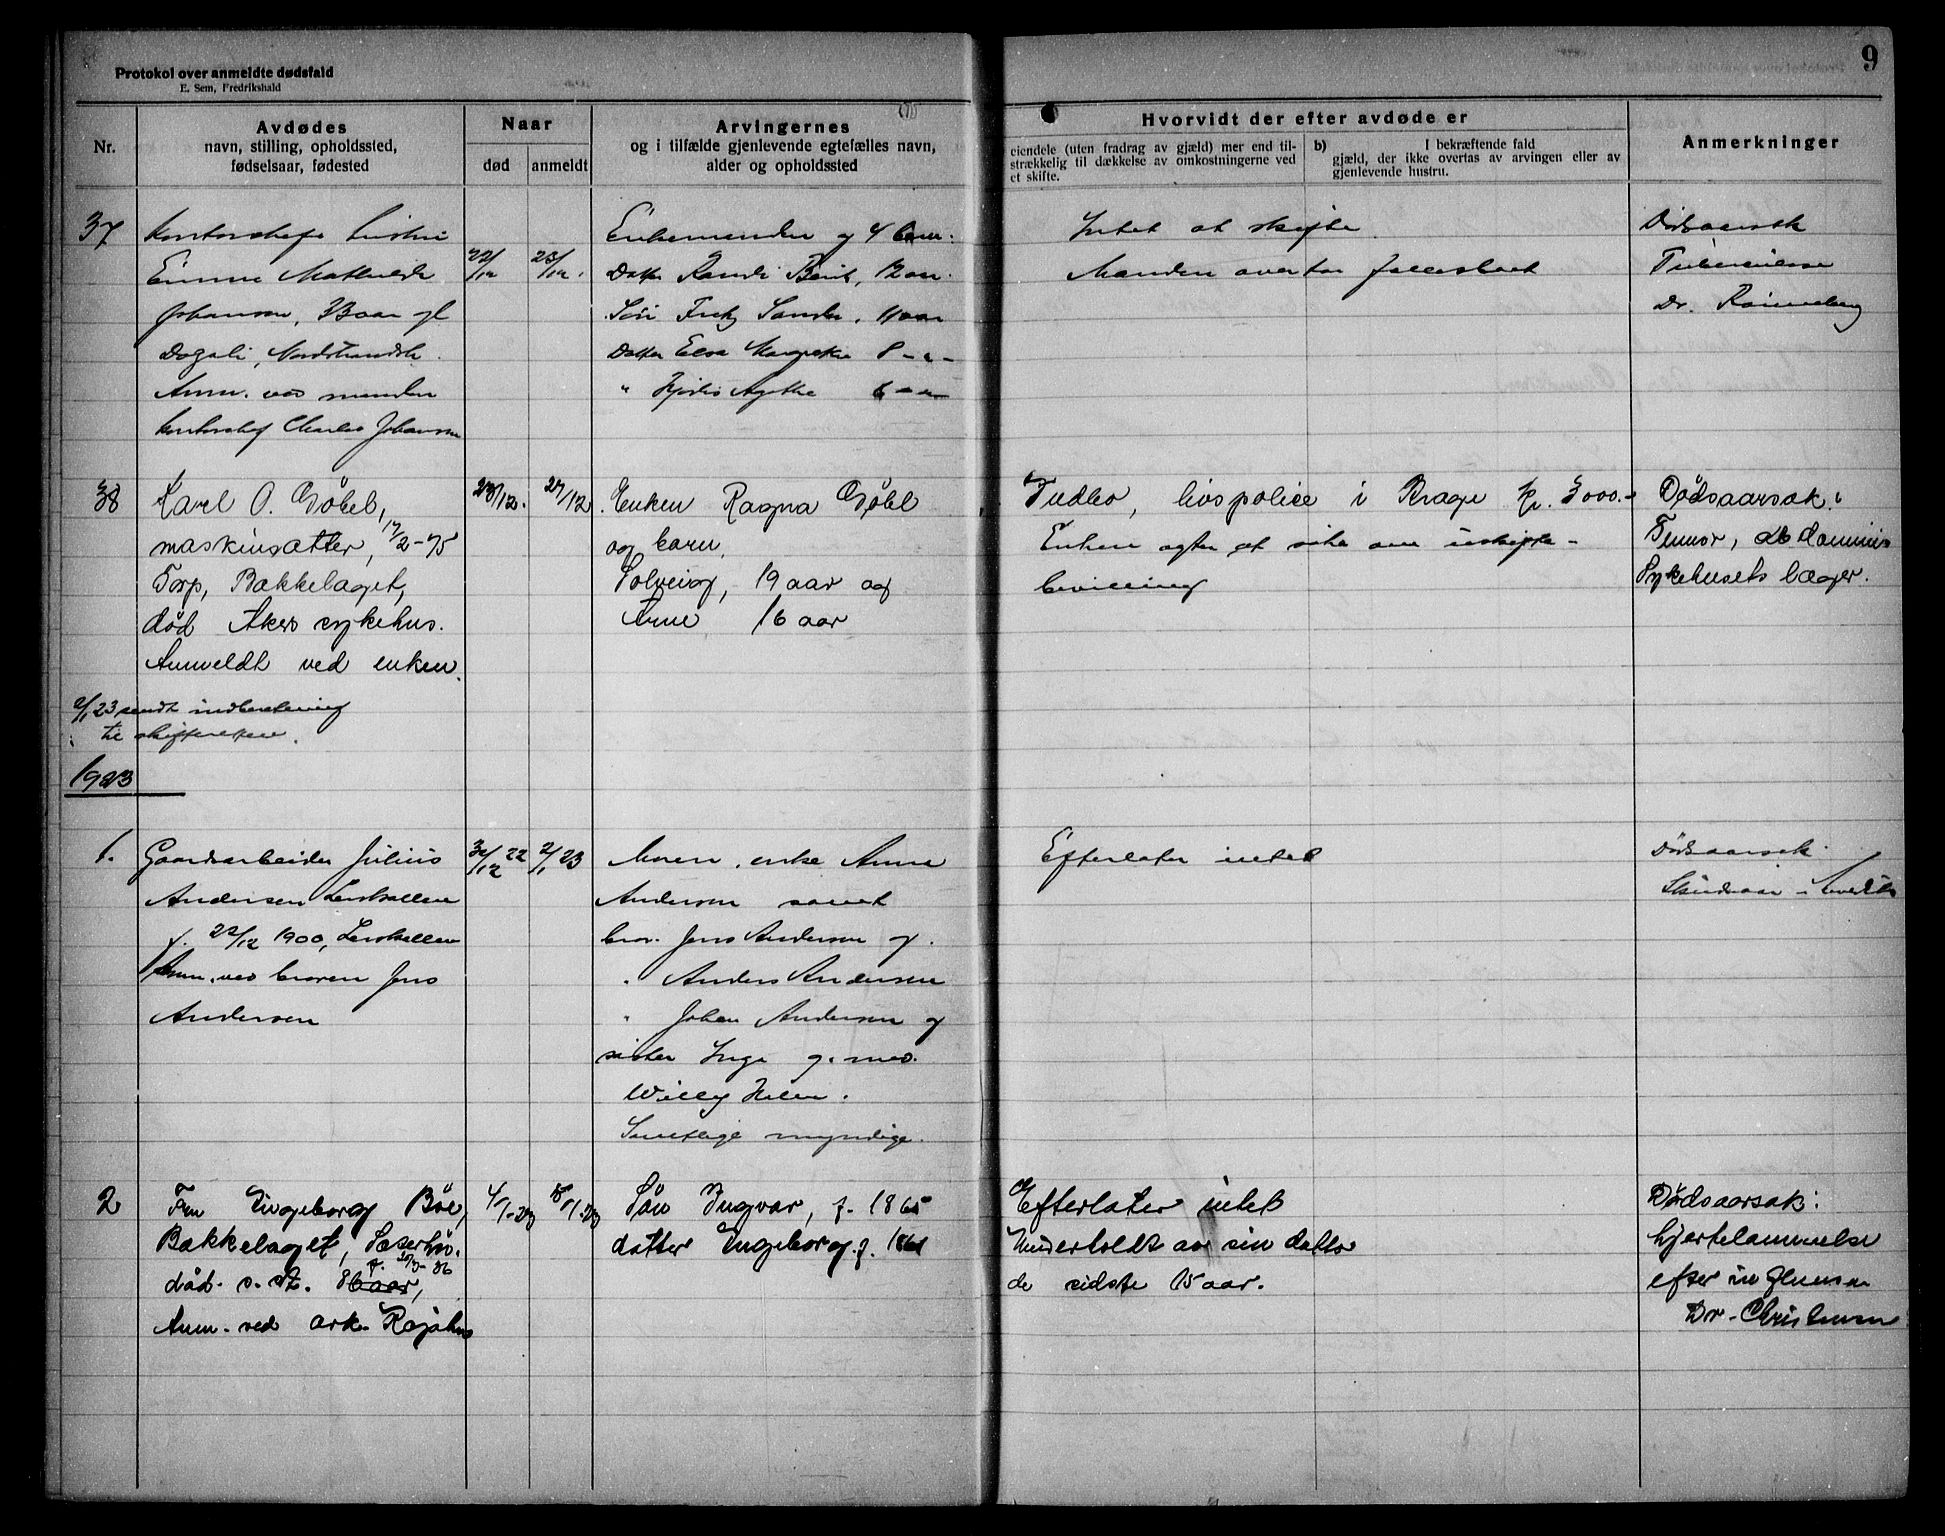 Protokol over anmeldte dødsfald
E. Sem, Fredrikshald
9
Nr.
Avdødes
navn, stilling, opholdssted,
fødselsaar, fødested
Naar
død
anmeldt
Arvingernes
og i tilfælde gjenlevende egtefælles navn,
alder og opholdssted
Hvorvidt der efter avdøde er
eiendele (uten fradrag av gjæld) mer end til-
strækkelig til dækkelse av omkostningerne ved
et skifte.
b) I bekræftende fald
gjæld, der ikke overtas av arvingen eller av
gjenlevende hustru.
Anmerkninger
37
Kontorchefs hustru
Emma Mathilde
Johansen, aar gl
Dogali, Nordstrandsh.
Anm. ved manden
kontorchef Charles Johansen
22/12
23/12.
Enkemanden og 4 barn.
Datter Randi Berit, 12 aar.
Søn Fritz Sander, 11 aar
Datter Elsa Margrethe 8 - " -
" Hjördis Agathe 6 - " -
Intet at skifte
Manden overtar fællesboet
Dødsaarsak
Tuberculose
Dr. Rønneberg
38
Karel O. Göbel,
maskinsætter, 17/2-75
Torp, Bækkelaget,
død Akers sykehus.
Anmeldt ved enken.
23/12.
27/12
Enken Ragna Gøbel
og barn,
Solveig, 19 aar og
Arne 16 aar
Indbo, livspolice i Brage kr. 3000.-
Enken agter at sitte om uskifte-
bevilling
Dødsaarsak:
Tumor, abdominis
Sykehusets læger.
2/1 23 sendt indberetning
til skifteretten.
1923
1.
Gaardsarbeider Julius
Andersen Lershallen
f. 22/12 1900, Lershallen
Anm. ved broren Jens
Andersen
22
2/1 23
Moren, enke Anna
Andersen samt
bror. Jens Andersen og.
" Anders Andersen
" Johan Andersen og
søster Inga g. med.
Willy
Samtlige myndige.
Efterlater intet
Dødsaarsak.
2
Fru Ingeborg Böe,
Bækkelaget,
död. s. st. 86 aar,
Anm. ved ark. Rojahn
4/1-23
5/1.23
Sön Ingvar, f. 1865
datter Ingeborg. f. 1861
Efterlater intet
Underholdt av sin datter
de sidste 15 aar.
Dødsaarsak:
hjertelammelse
efter influensa
Dr. Christensen